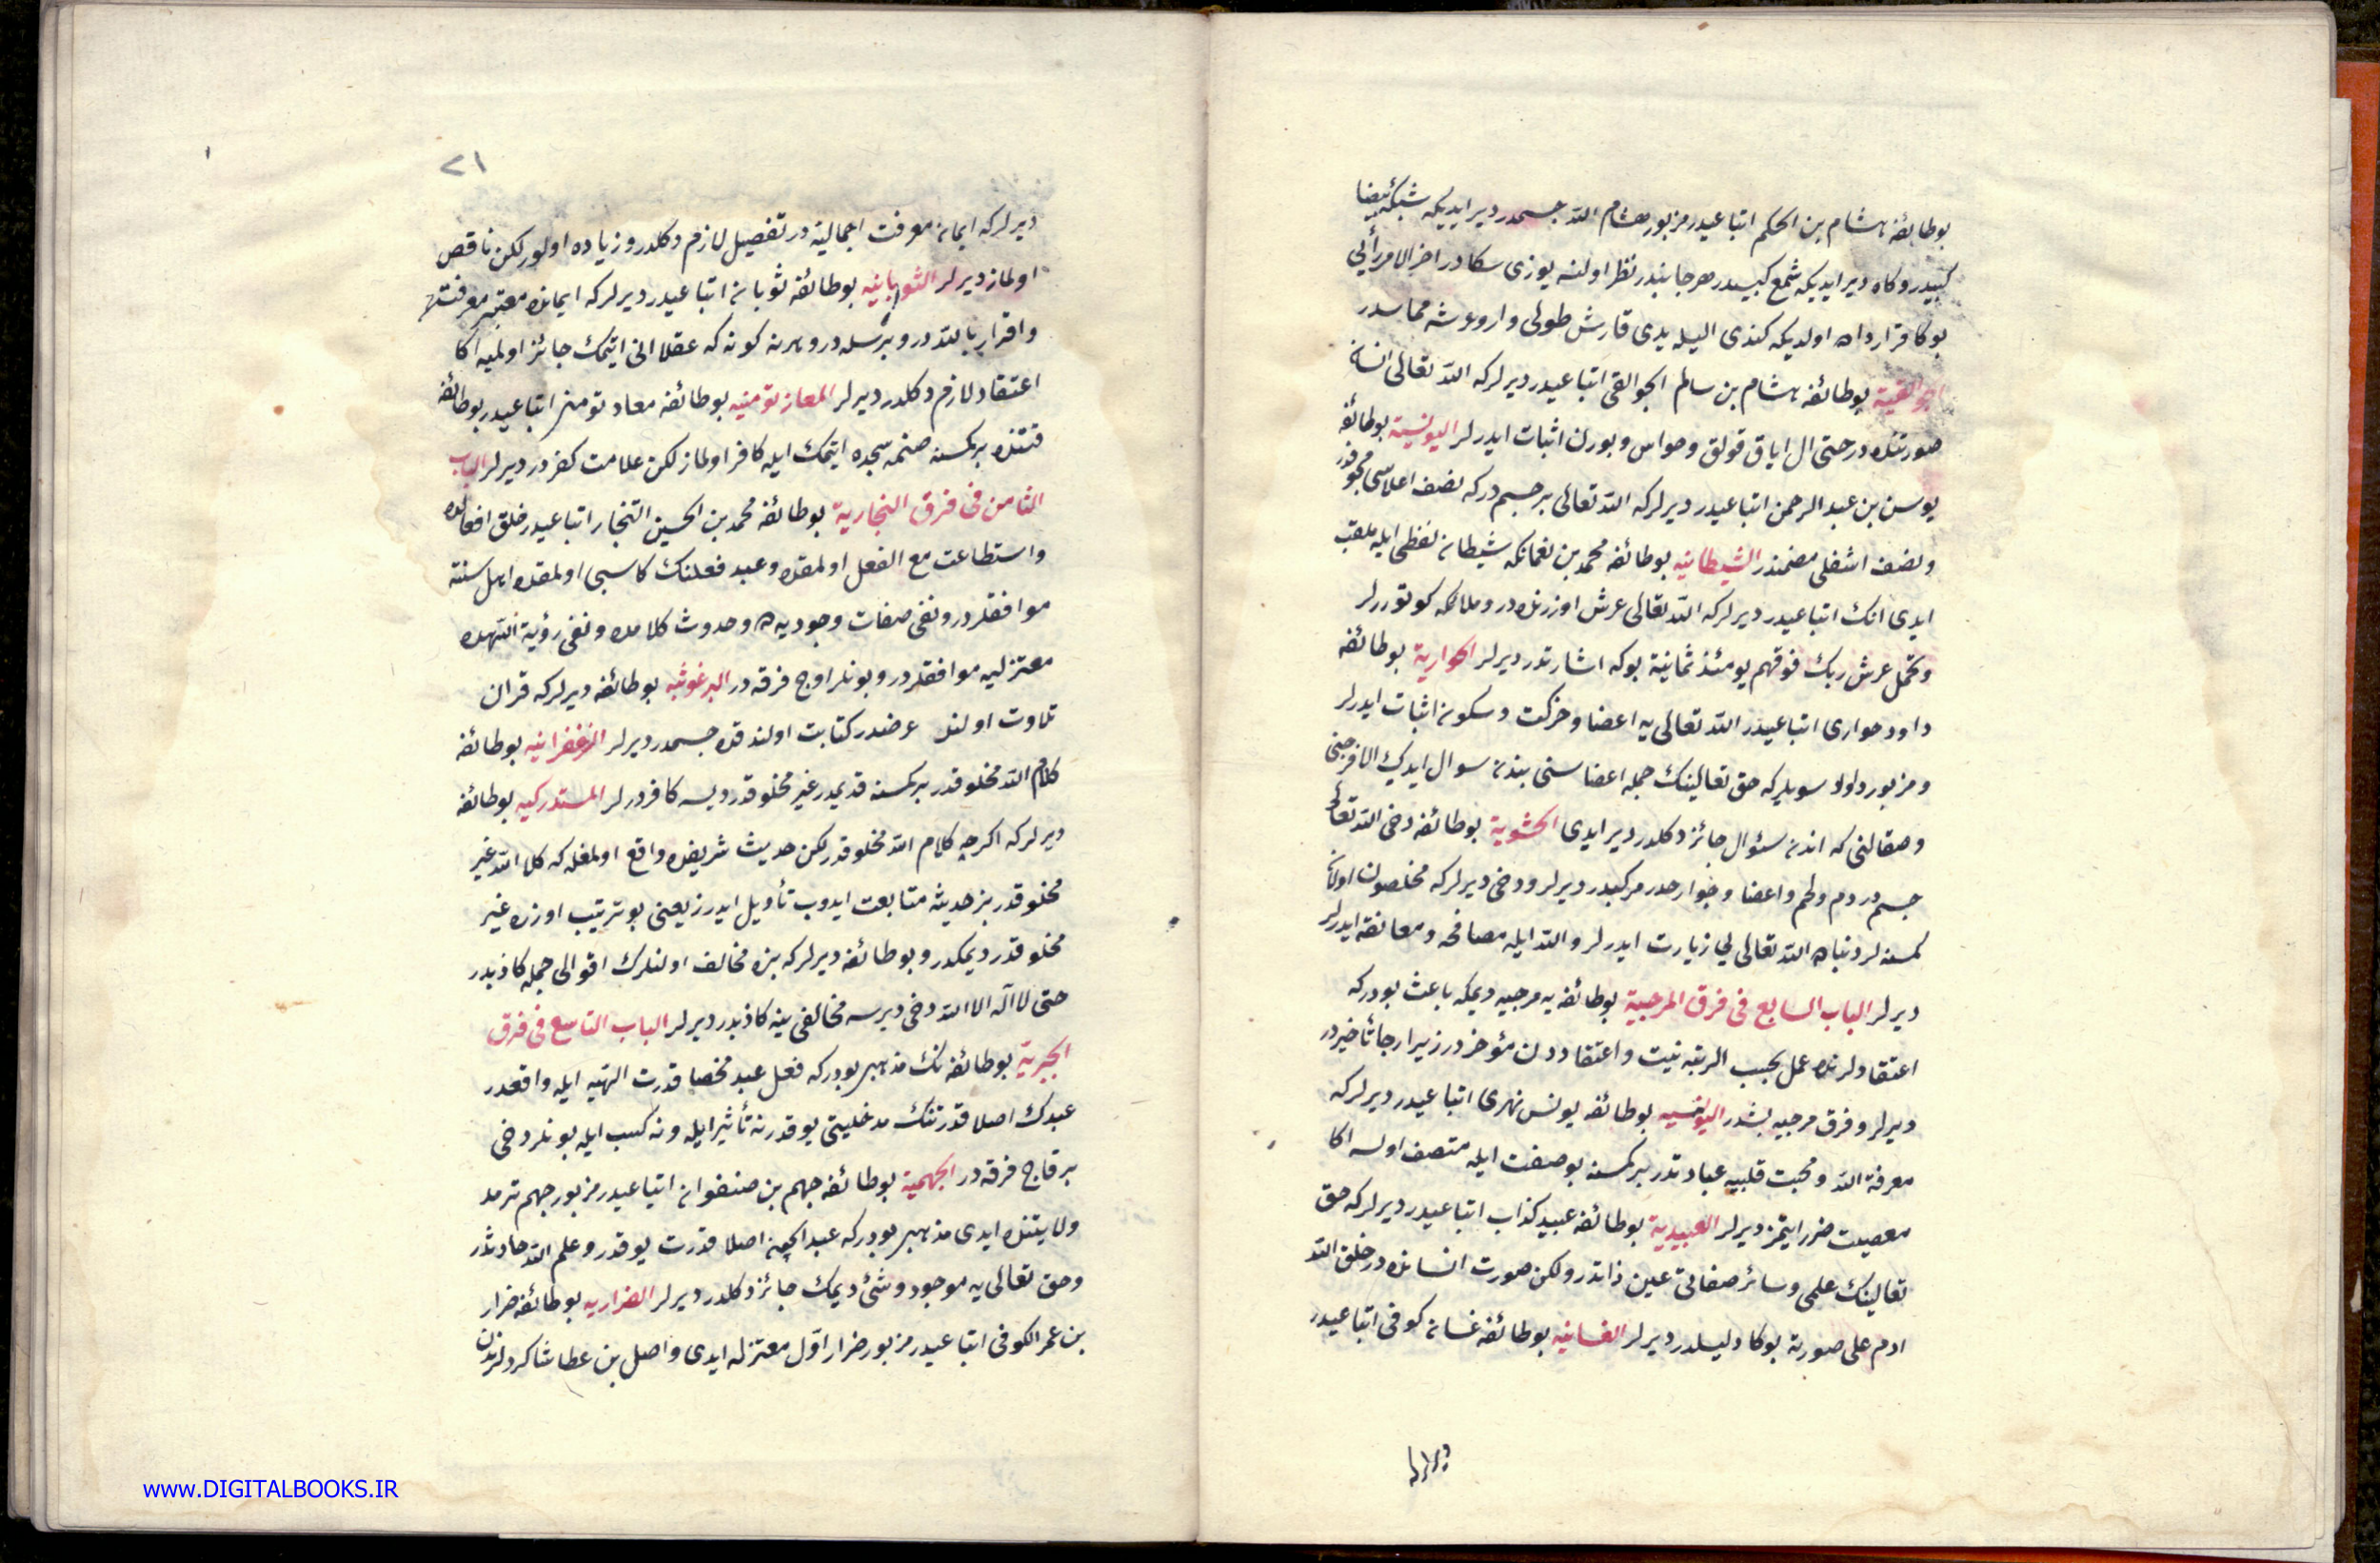 بو طائفه هشام بن الحكم اتباعيدر مزبور هشام الله جسمدر دير ايديكه شبكه بيضا
كبيدر وكاه دير ايديكه شمع كبيدر هر جانبدن نظر اولنسه يوزى سكادر اخر الامر رأيى
بوكا قرارداده اولديكه كندى اليله يدى قارش طولى وار وعرشه مماسدر
الجواليقية بو طائفه هشام بن سالم الجوالقى اتباعيدر ديرلركه الله تعالى انسان
صورتنده در حتى ال اياق قولق وحواس وبورن اثبات ايدرلر اليونسية بو طائفه
يونس بن عبد الرحمن اتباعيدر ديرلركه الله تعالى بر جسمدركه نصف اعلاسى مجوفدر
ونصف اسفلى مصمتدر الشيطانيه بو طائفه محمد بن نعمانكه شيطان لفظى ايله ملقب
ايدى انك اتباعيدر ديرلركه الله تعالى عرش اوزرنده در وملائكه كوتوررلر
وتحمل عرش ربك فوقهم يومئذ ثمانية بوكه اشارتدر ديرلر الحوارية بو طائفه
داود حوارى اتباعيدر الله تعالى يه اعضا وحركت وسكون اثبات ايدرلر
ومزبور داود سويلركه حق تعالينك جمله اعضاسنى بندن سوال ايدك الا فرجنى
وصقالنى كه اندن سؤال جائز دكلدر دير ايدى الحشوية بو طائفه دخى الله تعالى
جسمدر دم ولحم واعضا وجوارحدن مركبدر ديرلر ودخى ديرلركه مخلصون اولان
كمسنه لر دنياده الله تعالى يى زيارت ايدرلر والله ايله مصافحه ومعانقه ايدرلر
ديرلر الباب السابع فى فرق المرجيية بو طائفه يه مرجيه ديمكه باعث بودركه
اعتقادلرنده عمل بحسب الرتبه نيت واعتقاددن مؤخردر زيرا ارجا تأخيردر
ديرلر وفرق مرجيه بشدر اليونسيه بو طائفه يونس نهرى اتباعيدر ديرلركه
معرفة الله ومحبت قلبيه عبادتدر بر كمسنه بو صفت ايله متصف اولسه اكا
معصيت ضرر ايتمز ديرلر العبيدية بو طائفه عبيد كذاب اتباعيدر ديرلركه حق
تعالينك علمى وسائر صفاتى عين ذاتدر ولكن صورت انسانده در خلق الله
ادم على صورته بوكا دليلدر ديرلر الغسانيه بو طائفه غسان كوفى اتباعيدر
ديرلر
٢١
ديرلركه ايمان معرفت اجماليه در تفصيل لازم دكلدر وزياده اولور لكن ناقص
اولماز ديرلر الثوبانيه بو طائفه ثوبان اتباعيدر ديرلركه ايمانده معتبر معرفتله
واقرار بالله در وبرسله در وهرنه كونه كه عقلا انى ايتمك جائز اولميه اكا
اعتقاد لازم دكلدر ديرلر المعاز تومنيه بو طائفه معاد تومنى اتباعيدر بو طائفه
قتنده بر كمسنه صنمه سجده ايتمك ايله كافر اولماز لكن علامت كفردر ديرلر الباب
الثامن فى فرق النجارية بو طائفه محمد بن الحسين النجار اتباعيدر خلق افعالده
واستطاعت مع الفعل اولمقده وعبد فعلنك كاسبى اولمقده اهل سنته
موافقلردر ونفى صفات وجوديه ده وحدوث كلامده ونفى رؤية اللهده
معتزليه موافقلردر وبونلر اوج فرقه در البرغوثيه بو طائفه ديرلركه قران
تلاوت اولنسه عرضدر كتابت اولندقده جسمدر ديرلر الزعفرانيه بو طائفه
كلام الله مخلوقدر بر كمسنه قديمدر غير مخلوقدر ديسه كافردرلر المستدركيه بو طائفه
ديرلركه اكرچه كلام الله مخلوقدر لكن حديث شريفده واقع اولمغله كه كلام الله غير
مخلوقدر بز حديثه متابعت ايدوب تأويل ايدرز يعنى بو ترتيب اوزره غير
مخلوقدر ديمكدر وبو طائفه ديرلركه بزه مخالف اولنلرك اقوالى جمله كاذبدر
حتى لا اله الا الله دخى ديرسه مخالفى ينه كاذبدر ديرلر الباب التاسع فى فرق
الجبرية بو طائفه نك مذهبى بودركه فعل عبد محضا قدرت الهيه ايله واقعدر
عبدك اصلا قدرتنك مدخليتى يوقدر نه تأثير ايله ونه كسب ايله بونلر دخى
بر قاج فرقه در الجهمية بو طائفه جهم بن صفوان اتباعيدر مزبور جهم ترمد
ولايتنده ايدى مذهبى بودركه عبد ايچن اصلا قدرت يوقدر وعلم الله حادثدر
وحق تعالى يه موجود وشئ ديمك جائز دكلدر ديرلر الضراريه بو طائفه ضرار
بن عمر الكوفى اتباعيدر مزبور ضرار اول معتزله ايدى واصل بن عطا شاكردلرندن
www.DIGITALBOOKS.IR